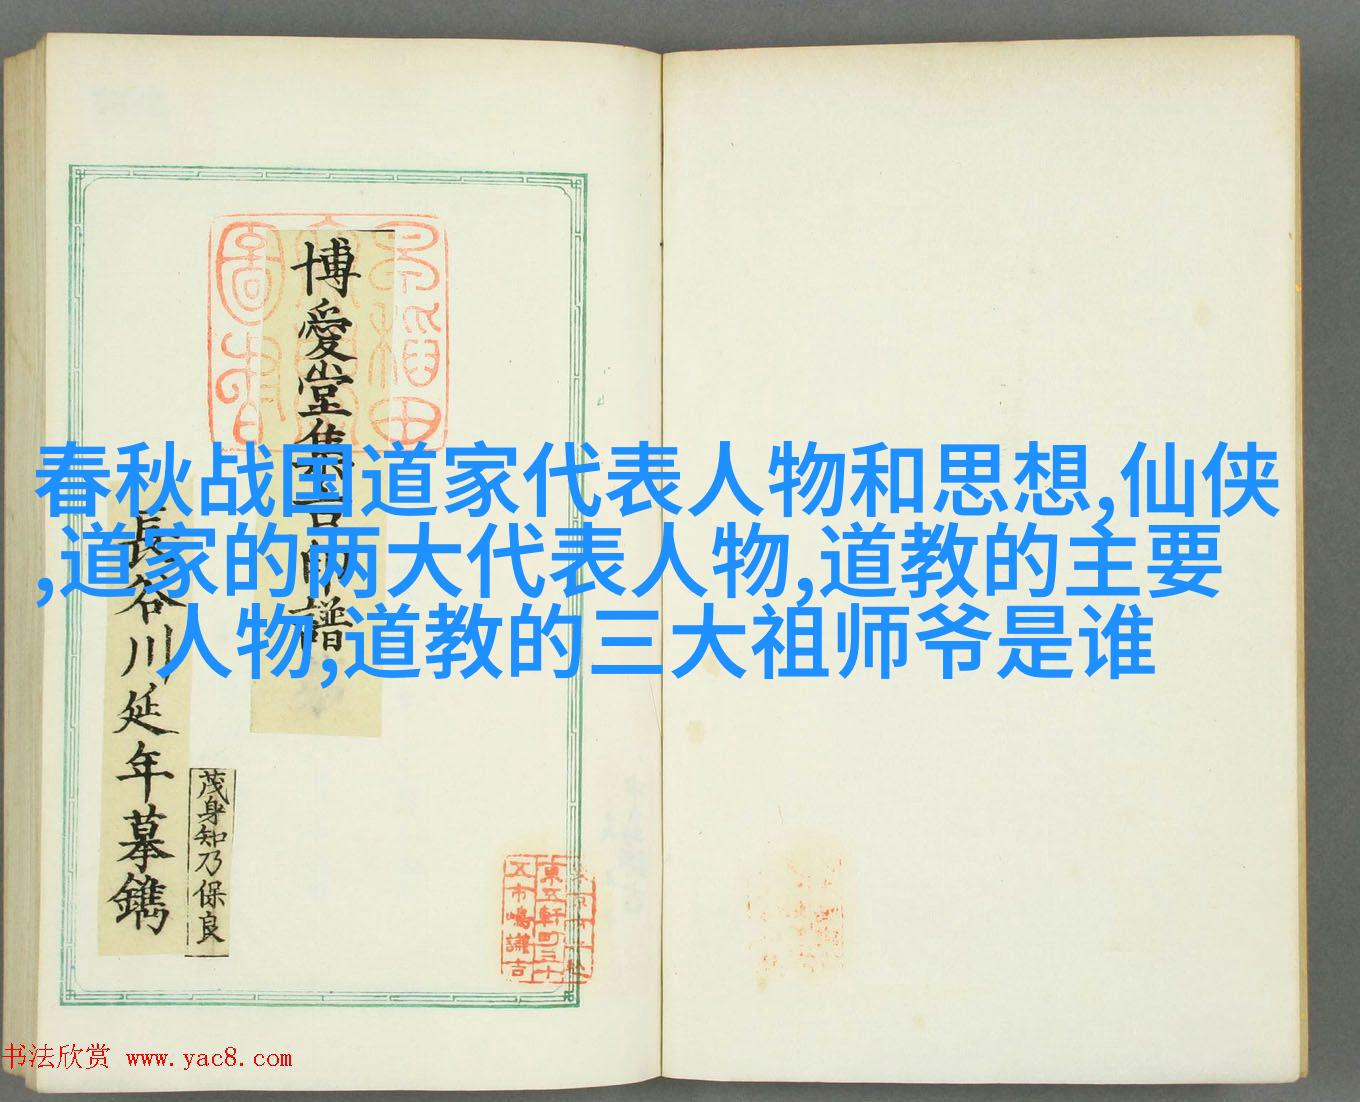 博愛堂集古印譜
長谷川延年摹鐫
茂身知乃保良
春秋战国道家代表人物和思想,仙侠
,道家的两大代表人物,道教的主要
人物,道教的三大祖师爷是谁
五市嶋謙吉
東五軒町三十
书法欣赏 www.yac8.com